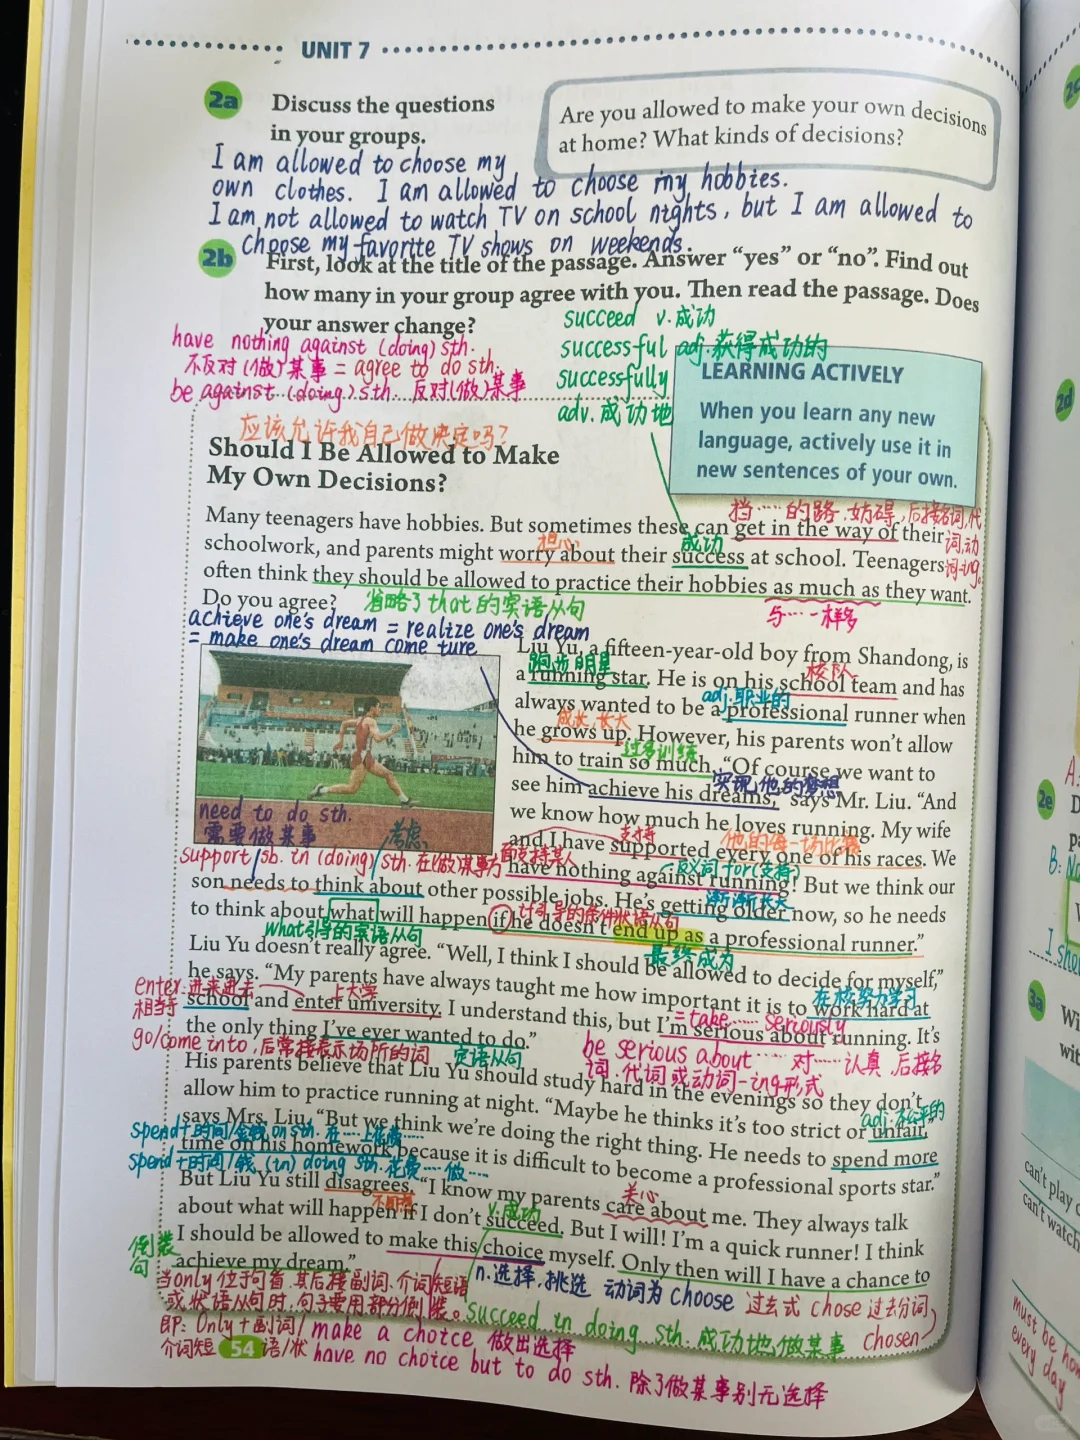 UNIT 7
2a Discuss the questions
in your groups.
Are you allowed to make your own decisions
at home? What kinds of decisions?
I am allowed to choose my
own clothes. I am allowed to choose my hobbies.
I am not allowed to watch TV on school nights, but I am allowed to
choose my favorite TV shows on weekends.
2b First, look at the title of the passage. Answer “yes” or “no”. Find out
how many in your group agree with you. Then read the passage. Does
your answer change?
succeed v.成功
successful adj.获得成功的
successfully
adv.成功地
have nothing against (doing) sth.
不反对(做)某事 = agree to do sth.
be against (doing) sth. 反对(做)某事
LEARNING ACTIVELY
When you learn any new
language, actively use it in
new sentences of your own.
应该允许我自己做决定吗?
Should I Be Allowed to Make
My Own Decisions?
挡……的路,妨碍,后接名词,代
词,动
词-ing.
Many teenagers have hobbies. But sometimes these can get in the way of their
担心
成功
schoolwork, and parents might worry about their success at school. Teenagers
often think they should be allowed to practice their hobbies as much as they want.
Do you agree?
省略了that的宾语从句
与……一样多
achieve one's dream = realize one's dream
= make one's dream come ture
Liu Yu, a fifteen-year-old boy from Shandong, is
跑步明星
校队
a running star. He is on his school team and has
adj.职业的
always wanted to be a professional runner when
成长,长大
he grows up. However, his parents won’t allow
过多训练
him to train so much. “Of course we want to
实现他的梦想
see him achieve his dreams,” says Mr. Liu. “And
we know how much he loves running. My wife
支持
他的每一场比赛
and I have supported every one of his races. We
need to do sth.
需要做某事
考虑
support sb. in (doing) sth. 在(做)某事方面支持某人
反义词for(支持)
have nothing against running! But we think our
渐渐长大
son needs to think about other possible jobs. He’s getting older now, so he needs
if引导的条件状语从句
to think about what will happen if he doesn’t end up as a professional runner.”
what引导的宾语从句
最终成为
Liu Yu doesn’t really agree. “Well, I think I should be allowed to decide for myself,”
he says. “My parents have always taught me how important it is to work hard at
enter:进来进去
上大学
在校努力学习
相当于
school and enter university. I understand this, but I’m serious about running. It’s
=take…… seriously
the only thing I’ve ever wanted to do.”
go/come into,后常接表示场所的词
定语从句
be serious about…… 对……认真,后接名
词,代词或动词-ing形式
His parents believe that Liu Yu should study hard in the evenings so they don’t
allow him to practice running at night. “Maybe he thinks it’s too strict or unfair,”
adj.不公平的
says Mrs. Liu. “But we think we’re doing the right thing. He needs to spend more
spend+时间/金钱 on sth. 在……上花费……
time on his homework because it is difficult to become a professional sports star.”
spend+时间/钱 (in) doing sth. 花费……做……
But Liu Yu still disagrees. “I know my parents care about me. They always talk
不同意
关心
about what will happen if I don’t succeed. But I will! I’m a quick runner! I think
v.成功
I should be allowed to make this choice myself. Only then will I have a chance to
倒装
句
achieve my dream.”
n.选择,挑选 动词为choose 过去式 chose 过去分词
chosen
当only位于句首,其后接副词,介词短语
或状语从句时,句子要用部分倒装。
succeed in doing sth. 成功地做某事
即: Only+副词/
介词短语/状
make a choice 做出选择
54
have no choice but to do sth. 除了做某事别无选择
2c
2d
2e
3a
Wi
wit
can't play
can't watch
must be ho
every day